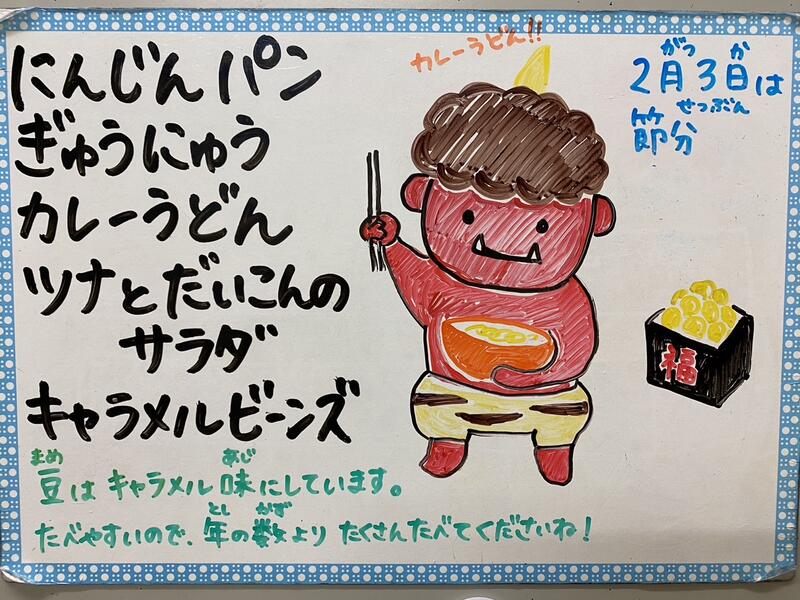 にんじんパン
ぎゅうにゅう
カレーうどん
ツナとだいこんの
サラダ
キャラメルビーンズ
まめ あじ
豆はキャラメル味にしています。
とし かず
たべやすいので、年の数より たくさんたべてくださいね!
カレーうどん!!
がつ か
2月3日は
せつぶん
節分
福